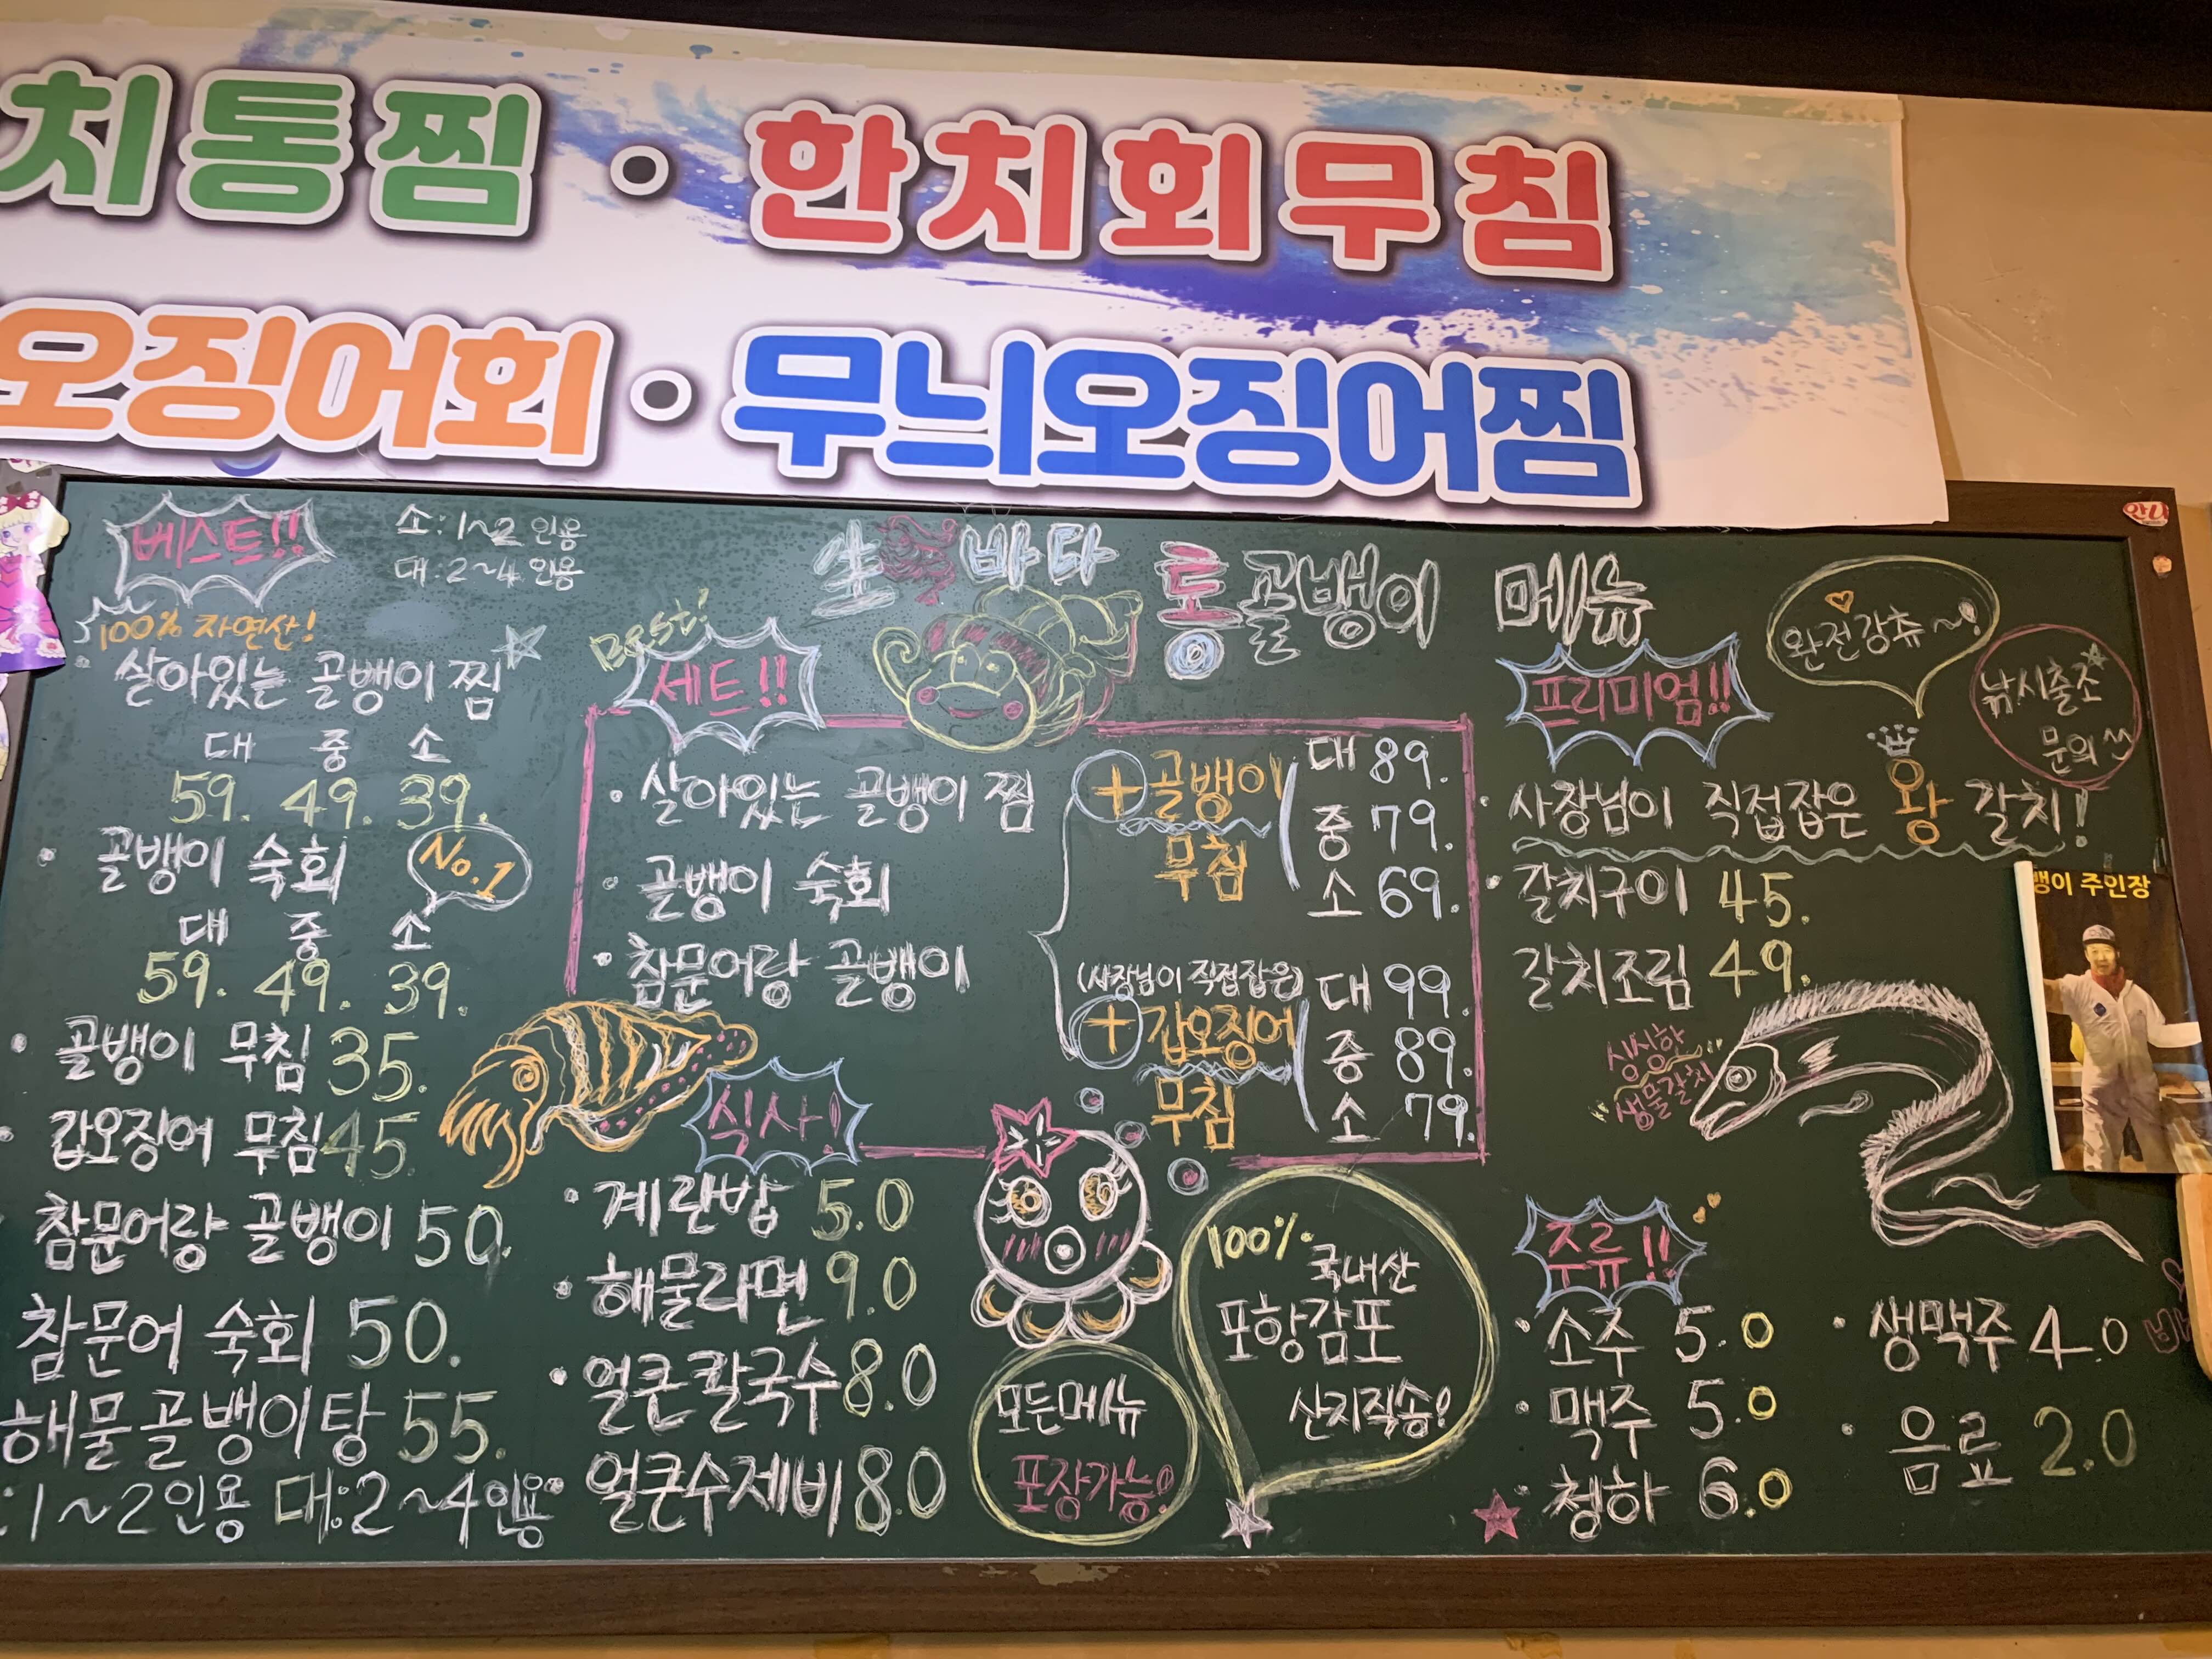 치통찜 · 한치회무침
오징어회 · 무늬오징어찜
베스트!!
소: 1~2 인용
대: 2~4 인용
100% 자연산!
살아있는 골뱅이 찜
대 중 소
59. 49. 39.
· 골뱅이 숙회
No.1
대 중 소
59. 49. 39.
· 골뱅이 무침 35.
· 갑오징어 무침 45.
참문어랑 골뱅이 50.
참문어 숙회 50.
해물골뱅이탕 55.
:1~2인용 대:2~4인용
生 바다 통골뱅이 메뉴
Best!
세트!!
· 살아있는 골뱅이 찜
· 골뱅이 숙회
· 참문어랑 골뱅이
+골뱅이
무침
대 89.
중 79.
소 69.
(사장님이 직접잡은)
+갑오징어
무침
대 99.
중 89.
소 79.
식사!
· 계란밥 5.0
· 해물라면 9.0
· 얼큰칼국수 8.0
· 얼큰수제비 8.0
모든메뉴
포장가능!
100% 국내산
포항감포
산지직송!
완전강츄~!
낚시출조
문의
프리미엄!!
· 사장님이 직접잡은 왕 갈치!
· 갈치구이 45.
갈치조림 49.
싱싱한
생물갈치
뱅이 주인장
주류!!
· 소주 5.0
· 맥주 5.0
· 청하 6.0
· 생맥주 4.0
· 음료 2.0